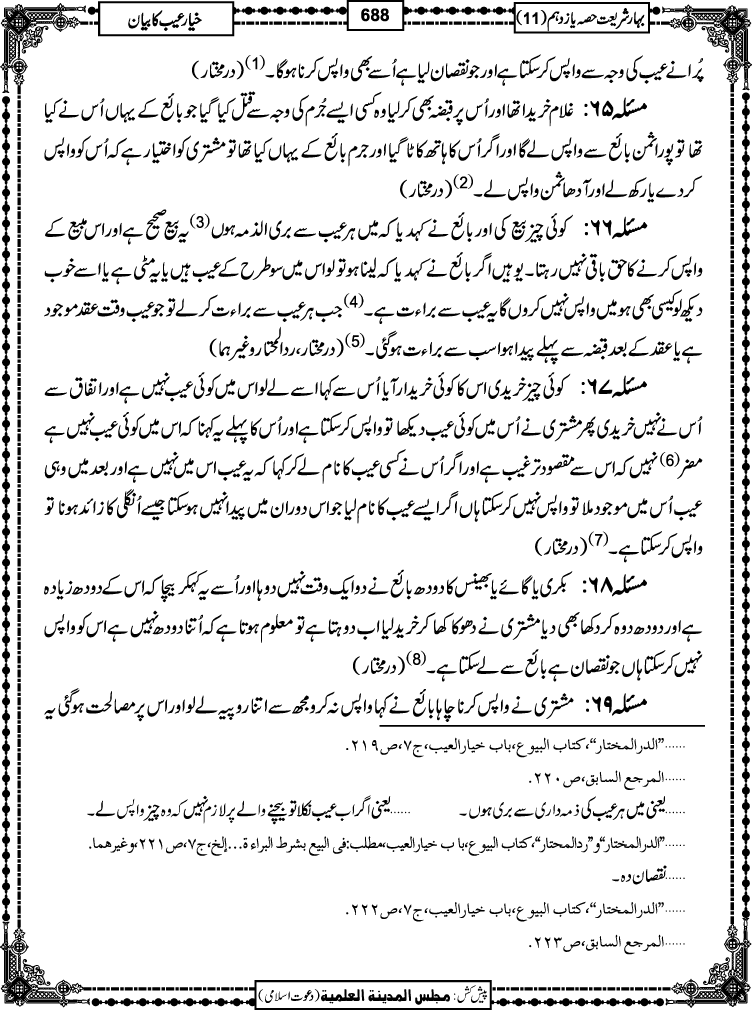 بہارِ شریعت حصہ یازدہم (11)
688
خیار عیب کا بیان
پُرانے عیب کی وجہ سے واپس کرسکتا ہے اور جو نقصان لیا ہے اُسے بھی واپس کرنا ہوگا۔ (1) (درمختار)
مسئلہ ۶۵: غلام خریدا تھا اور اُس پر قبضہ بھی کرلیا وہ کسی ایسے جُرم کی وجہ سے قتل کیا گیا جو بائع کے یہاں اُس نے کیا
تھا تو پورا ثمن بائع سے واپس لے گا اور اگر اُس کا ہاتھ کاٹا گیا اور جرم بائع کے یہاں کیا تھا تو مشتری کو اختیار ہے کہ اُس کو واپس
کردے یا رکھ لے اور آدھا ثمن واپس لے۔ (2) (درمختار)
مسئلہ ۶۶: کوئی چیز بیع کی اور بائع نے کہدیا کہ میں ہر عیب سے بری الذمہ ہوں (3) یہ بیع صحیح ہے اور اس مبیع کے
واپس کرنے کا حق باقی نہیں رہتا۔ یوہیں اگر بائع نے کہدیا کہ لینا ہو تو لو اس میں سو طرح کے عیب ہیں یا یہ مٹی ہے یا اسے خوب
دیکھ لو کیسی بھی ہو میں واپس نہیں کروں گا یہ عیب سے براءت ہے۔ (4) جب ہر عیب سے براءت کرلے تو جو عیب وقت عقد موجود
ہے یا عقد کے بعد قبضہ سے پہلے پیدا ہوا سب سے براءت ہوگئی۔ (5) (درمختار، ردالمحتار وغیرهما)
مسئلہ ۶۷: کوئی چیز خریدی اس کا کوئی خریدار آیا اُس سے کہا اسے لے لو اس میں کوئی عیب نہیں ہے اور اتفاق سے
اُس نے نہیں خریدی پھر مشتری نے اُس میں کوئی عیب دیکھا تو واپس کرسکتا ہے اور اُس کا پہلے یہ کہنا کہ اس میں کوئی عیب نہیں ہے
مضر (6) نہیں کہ اس سے مقصود ترغیب ہے اور اگر اُس نے کسی عیب کا نام لے کر کہا کہ یہ عیب اس میں نہیں ہے اور بعد میں وہی
عیب اُس میں موجود ملا تو واپس نہیں کرسکتا ہاں اگر ایسے عیب کا نام لیا جو اس دوران میں پیدا نہیں ہوسکتا جیسے اُنگلی کا زائد ہونا تو
واپس کرسکتا ہے۔ (7) (درمختار)
مسئلہ ۶۸: بکری یا گائے یا بھینس کا دودھ بائع نے دو ایک وقت نہیں دوہا اور اُسے یہ کہکر بیچا کہ اس کے دودھ زیادہ
ہے اور دودھ دوہ کر دکھا بھی دیا مشتری نے دھوکا کھا کر خرید لیا اب دوہتا ہے تو معلوم ہوتا ہے کہ اُتنا دودھ نہیں ہے اس کو واپس
نہیں کرسکتا ہاں جو نقصان ہے بائع سے لے سکتا ہے۔ (8) (درمختار)
مسئلہ ۶۹: مشتری نے واپس کرنا چاہا بائع نے کہا واپس نہ کرو مجھ سے اتنا روپیہ لے لو اور اس پر مصالحت ہوگئی یہ
......”الدرالمختار“، کتاب البیوع، باب خیارالعیب، ج۷، ص۲۱۹.
......المرجع السابق، ص۲۲۰.
......یعنی میں ہر عیب کی ذمہ داری سے بری ہوں۔ ......یعنی اگر اب عیب نکلا تو بیچنے والے پر لازم نہیں کہ وہ چیز واپس لے۔
......”الدرالمختار“و”ردالمحتار“، کتاب البیوع، باب خیارالعیب، مطلب: فی البیع بشرط البراءة...إلخ، ج۷، ص۲۲۱، وغیرهما.
......نقصان دہ۔
......”الدرالمختار“، کتاب البیوع، باب خیارالعیب، ج۷، ص۲۲۲.
......المرجع السابق، ص۲۲۳.
پیش کش: مجلس المدینة العلمیة (دعوت اسلامی)